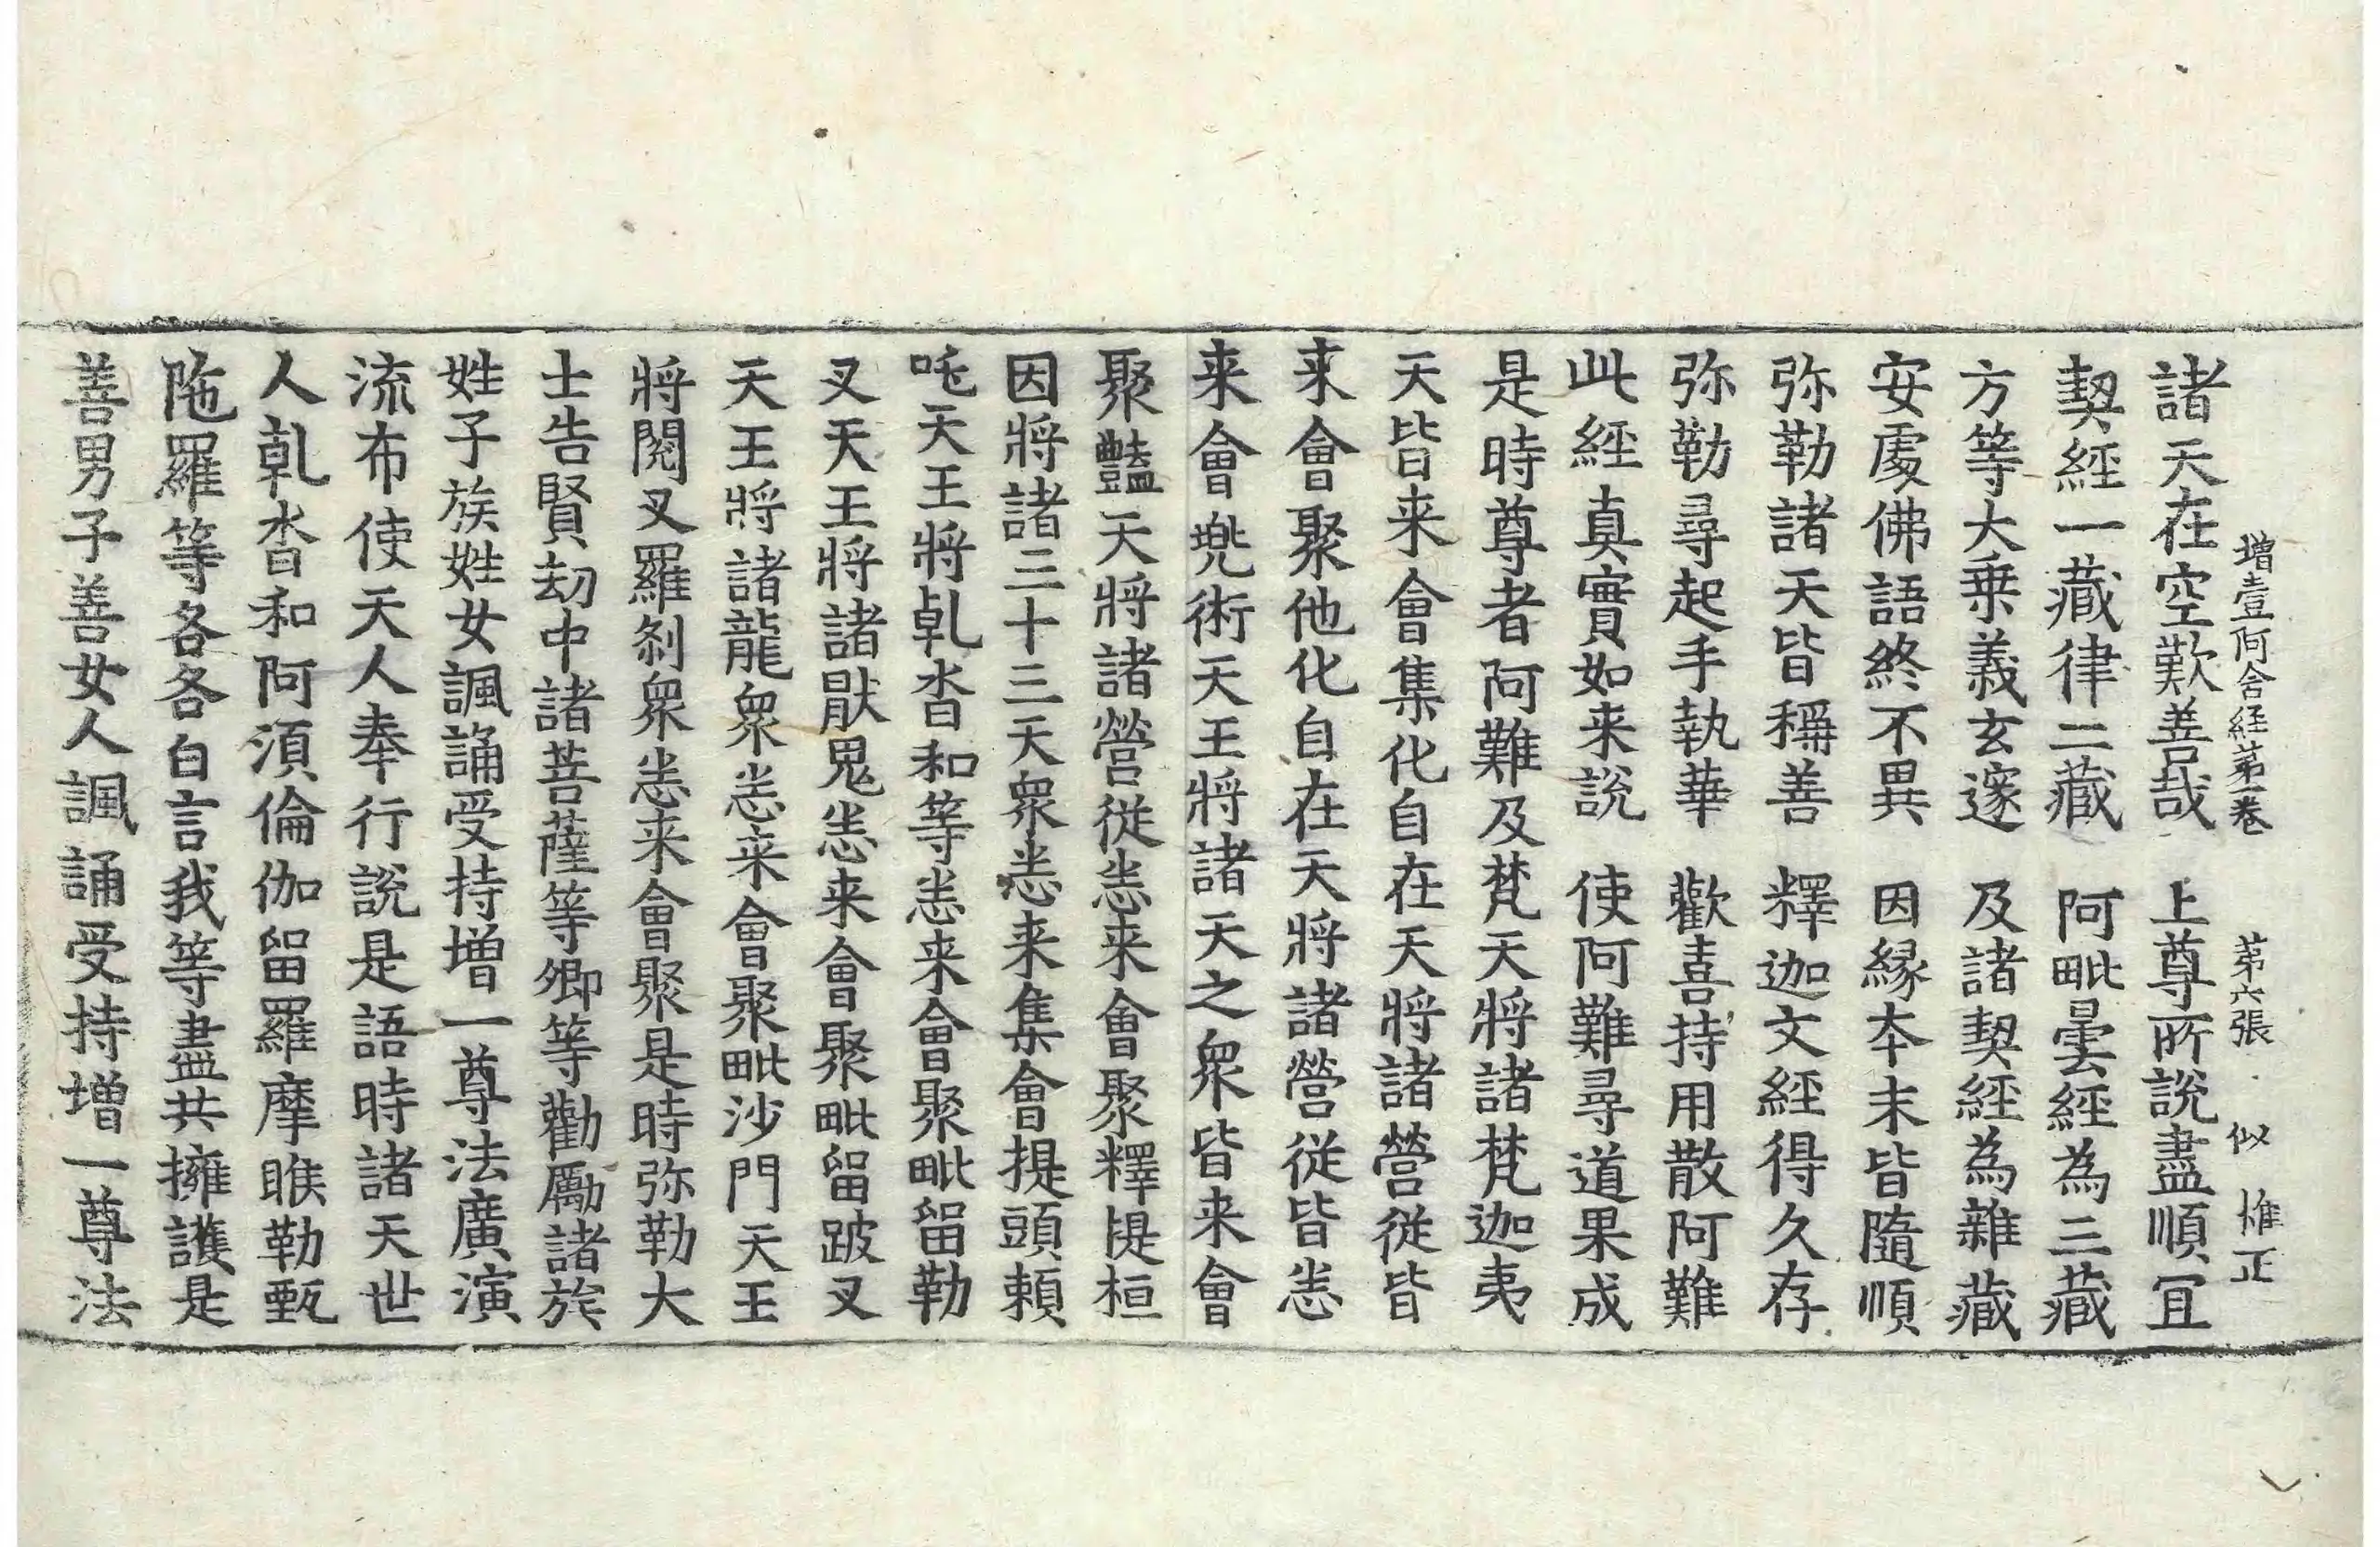 增壹阿含経苐一卷　苐六張　似　惟正
諸天在空歎善哉　上尊所說盡順冝
契經一藏律二藏　阿毗曇經為三藏
方等大乗義玄邃　及諸契經為雜藏
安處佛語終不異　因縁夲末皆隨順
弥勒諸天皆稱善　釋迦文經得久存
弥勒尋起手執華　歡喜持用散阿難
此經真實如来說　使阿難尋道果成
是時尊者阿難及梵天將諸梵迦夷
天皆来會集化自在天將諸營従皆
来會聚他化自在天將諸營従皆恙
来會兠術天王將諸天之衆皆来會
聚豔天將諸營従恙来會聚釋提桓
因將諸三十三天衆恙来集會提頭頼
吒天王將乹沓和等恙来會聚毗留勒
叉天王將諸猒鬼恙来會聚毗留跛叉
天王將諸龍衆恙来會聚毗沙門天王
將閱叉羅剎衆恙来會聚是時弥勒大
士告賢刧中諸菩薩等卿等勸勵諸族
姓子族姓女諷誦受持增一尊法廣演
流布使天人奉行說是語時諸天世
人乹沓和阿須倫伽留羅摩睺勒甄
陁羅等各各白言我等盡共擁護是
善男子善女人諷誦受持增一尊法